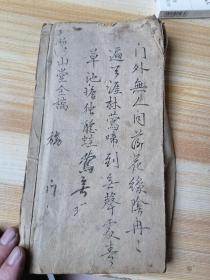 门外無人问落花綠陰冉々
遍天涯林鶯啼到無聲處青
草池塘聽蛙
山堂全稿